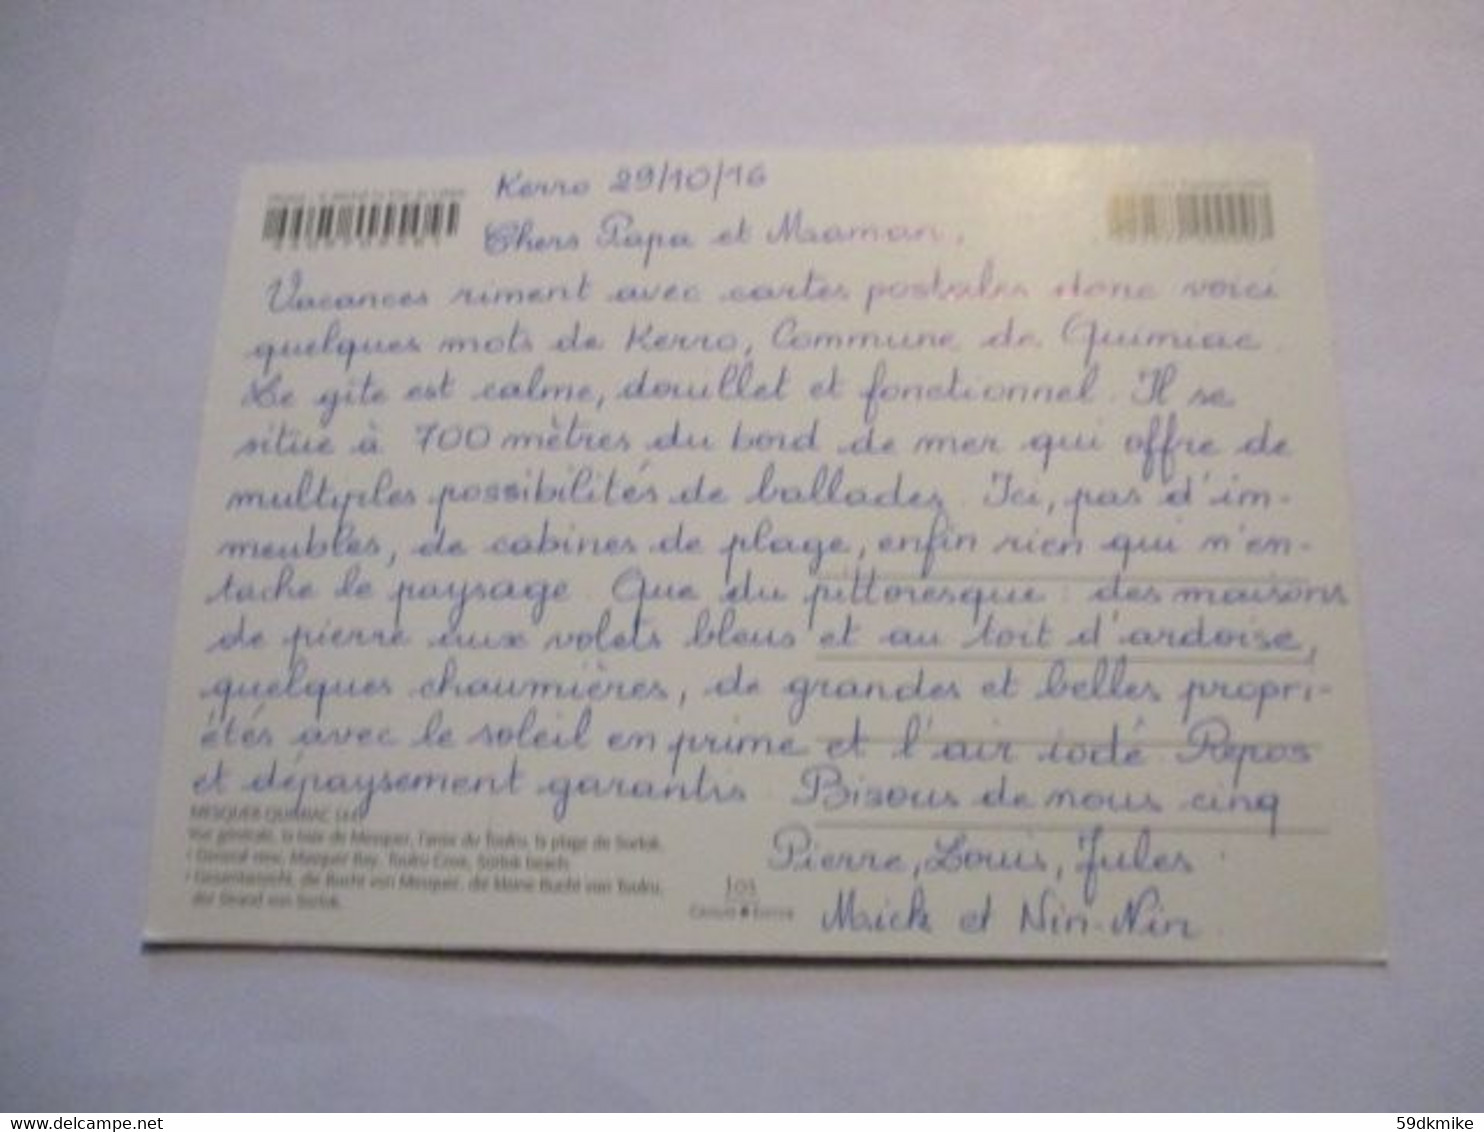 Kerro 29/10/16
Chers Papa et Maaman,
Vacances riment avec cartes postales donc voici
quelques mots de Kerro, Commune de Quimiac.
Le gîte est calme, douillet et fonctionnel. Il se
situe à 700 mètres du bord de mer qui offre de
multiples possibilités de ballades. Ici, pas d'im-
meubles, de cabines de plage, enfin rien qui n'en-
tache le paysage. Que du pittoresque : des maisons
de pierre aux volets bleus et au toit d'ardoise,
quelques chaumières, de grandes et belles propri-
étés avec le soleil en prime et l'air iodé. Repos
et dépaysement garantis. Bisous de nous cinq
Pierre, Louis, Jules
Maick et Nin-Nin
MESQUER QUIMIAC
Vue générale, la baie de Mesquer, l'anse du Toulru, la plage de Sorlok.
General view, Mesquer Bay, Toulru Cove, Sorlok beach.
Gesamtansicht, die Bucht von Mesquer, die kleine Bucht von Toulru,
der Strand von Sorlok.
Jos
59dkmike